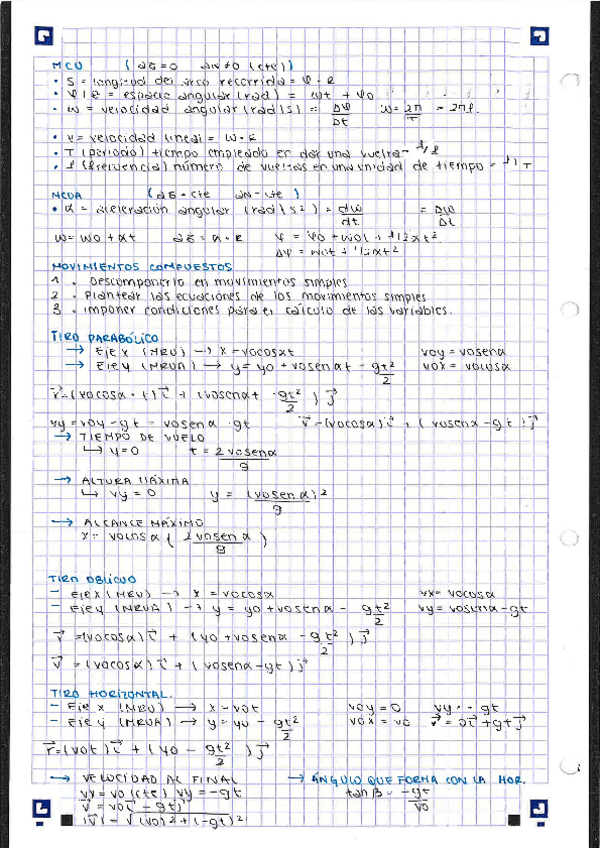 MCU ( at=0 aN≠0 (cte))
• S = longitud del arco recorrida = φ · R
• φ/θ = espacio angular (rad) = wt + φ0
• w = velocidad angular (rad/s) = Δφ/Δt w=2π/T = 2πf.
• v = velocidad lineal = w · R
• T (periodo) tiempo empleado en dar una vuelta = 1/f
• f (frecuencia) número de vueltas en una unidad de tiempo = 1/T
MCUA (at = cte aN = cte )
• α = aceleración angular (rad/s²) = dw/dt = Δw/Δt
w = w0 + αt at = α · R φ = φ0 + w0t + 1/2 αt²
Δφ = w0t + 1/2 αt²
MOVIMIENTOS COMPUESTOS
1. Descomponerlo en movimientos simples
2. Plantear las ecuaciones de los movimientos simples
3. Imponer condiciones para el cálculo de las variables.
TIRO PARABÓLICO
→ Eje x (MRU) → x = v0cosαt v0y = v0senα
→ Eje y (MRUA) → y = y0 + v0senαt - gt²/2 v0x = v0cosα
r⃗ = (v0cosα · t) i⃗ + (v0senαt - gt²/2 ) j⃗
vy = v0y - gt = v0senα - gt v⃗ = (v0cosα) i⃗ + ( v0senα - gt ) j⃗
→ TIEMPO DE VUELO
↳ y=0 t = 2v0senα/g
→ ALTURA MÁXIMA
↳ vy = 0 y = (v0senα)²/g
→ ALCANCE MÁXIMO
x = v0cosα ( 2v0senα/g )
TIRO OBLICUO
- Eje x (MRU) → x = v0cosα vx = v0cosα
- Eje y (MRUA) → y = y0 + v0senα - gt²/2 vy = v0senα - gt
v⃗ = (v0cosα) i⃗ + (y0 + v0senα - gt²/2 ) j⃗
v⃗ = (v0cosα) i⃗ + ( v0senα - gt ) j⃗
TIRO HORIZONTAL.
- Eje x (MRU) → x = v0t v0y = 0 vy = - gt
- Eje y (MRUA) → y = y0 - gt²/2 v0x = v0 v⃗ = 0i⃗ + gt j⃗
r⃗ = (v0t) i⃗ + (y0 - gt²/2 ) j⃗
→ VELOCIDAD AL FINAL → ÁNGULO QUE FORMA CON LA HOR.
vx = v0 (cte) vy = -gt tan β = -gt/v0
v⃗ = v0i⃗ - gtj⃗
|v⃗| = √(v0)² + (-gt)²